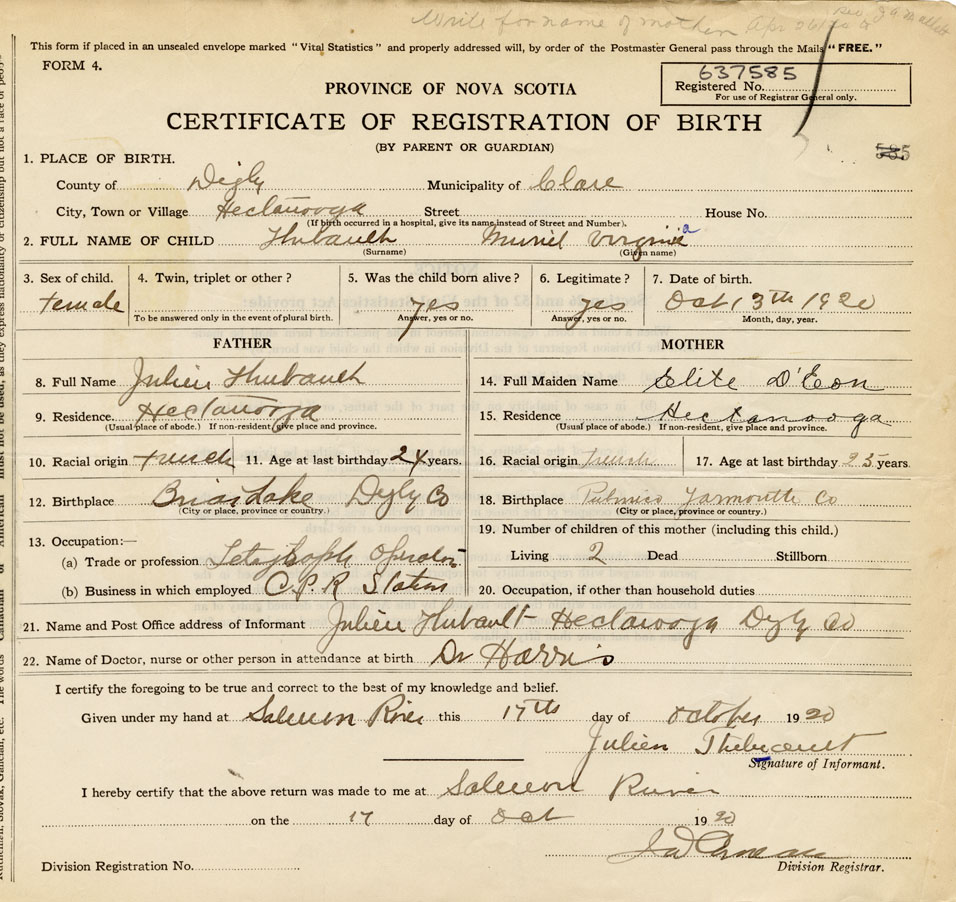 Write for name of mother Apr
This form if placed in an unsealed envelope marked "Vital Statistics" and properly addressed will, by order of the Postmaster General pass through the Mails "FREE."
FORM 4.
637585
Registered No.
For use of Registrar General only.
PROVINCE OF NOVA SCOTIA
CERTIFICATE OF REGISTRATION OF BIRTH
(BY PARENT OR GUARDIAN)
585
1. PLACE OF BIRTH.
County of Digby Municipality of Clare
City, Town or Village Hectanooga Street House No.
(If birth occurred in a hospital, give its name instead of Street and Number).
2. FULL NAME OF CHILD Thibault Muriel Virginia
(Surname) (Given name)
3. Sex of child. 4. Twin, triplet or other? 5. Was the child born alive? 6. Legitimate? 7. Date of birth.
female yes yes Oct 13th 1920
To be answered only in the event of plural birth. Answer, yes or no. Answer, yes or no. Month, day, year.
FATHER
8. Full Name Julien Thibault
9. Residence. Hectanooga
(Usual place of abode.) If non-resident, give place and province.
10. Racial origin French 11. Age at last birthday 24 years.
12. Birthplace Briar Lake Digby Co
(City or place, province or country.)
13. Occupation:—
(a) Trade or profession Telegraph Operator
(b) Business in which employed C.P.R Station
MOTHER
14. Full Maiden Name Elite D'Eon
15. Residence Hectanooga
(Usual place of abode.) If non-resident, give place and province.
16. Racial origin French 17. Age at last birthday 25 years.
18. Birthplace Pubnico Yarmouth Co
(City or place, province or country.)
19. Number of children of this mother (including this child.)
Living 2 Dead Stillborn
20. Occupation, if other than household duties
21. Name and Post Office address of Informant Julien Thibault Hectanooga Digby Co
22. Name of Doctor, nurse or other person in attendance at birth Dr Harris
I certify the foregoing to be true and correct to the best of my knowledge and belief.
Given under my hand at Salmon River this 17th day of October 1920
Julien Thibault
Signature of Informant.
I hereby certify that the above return was made to me at Salmon River
on the 17 day of Oct 1920
Division Registration No. Division Registrar.